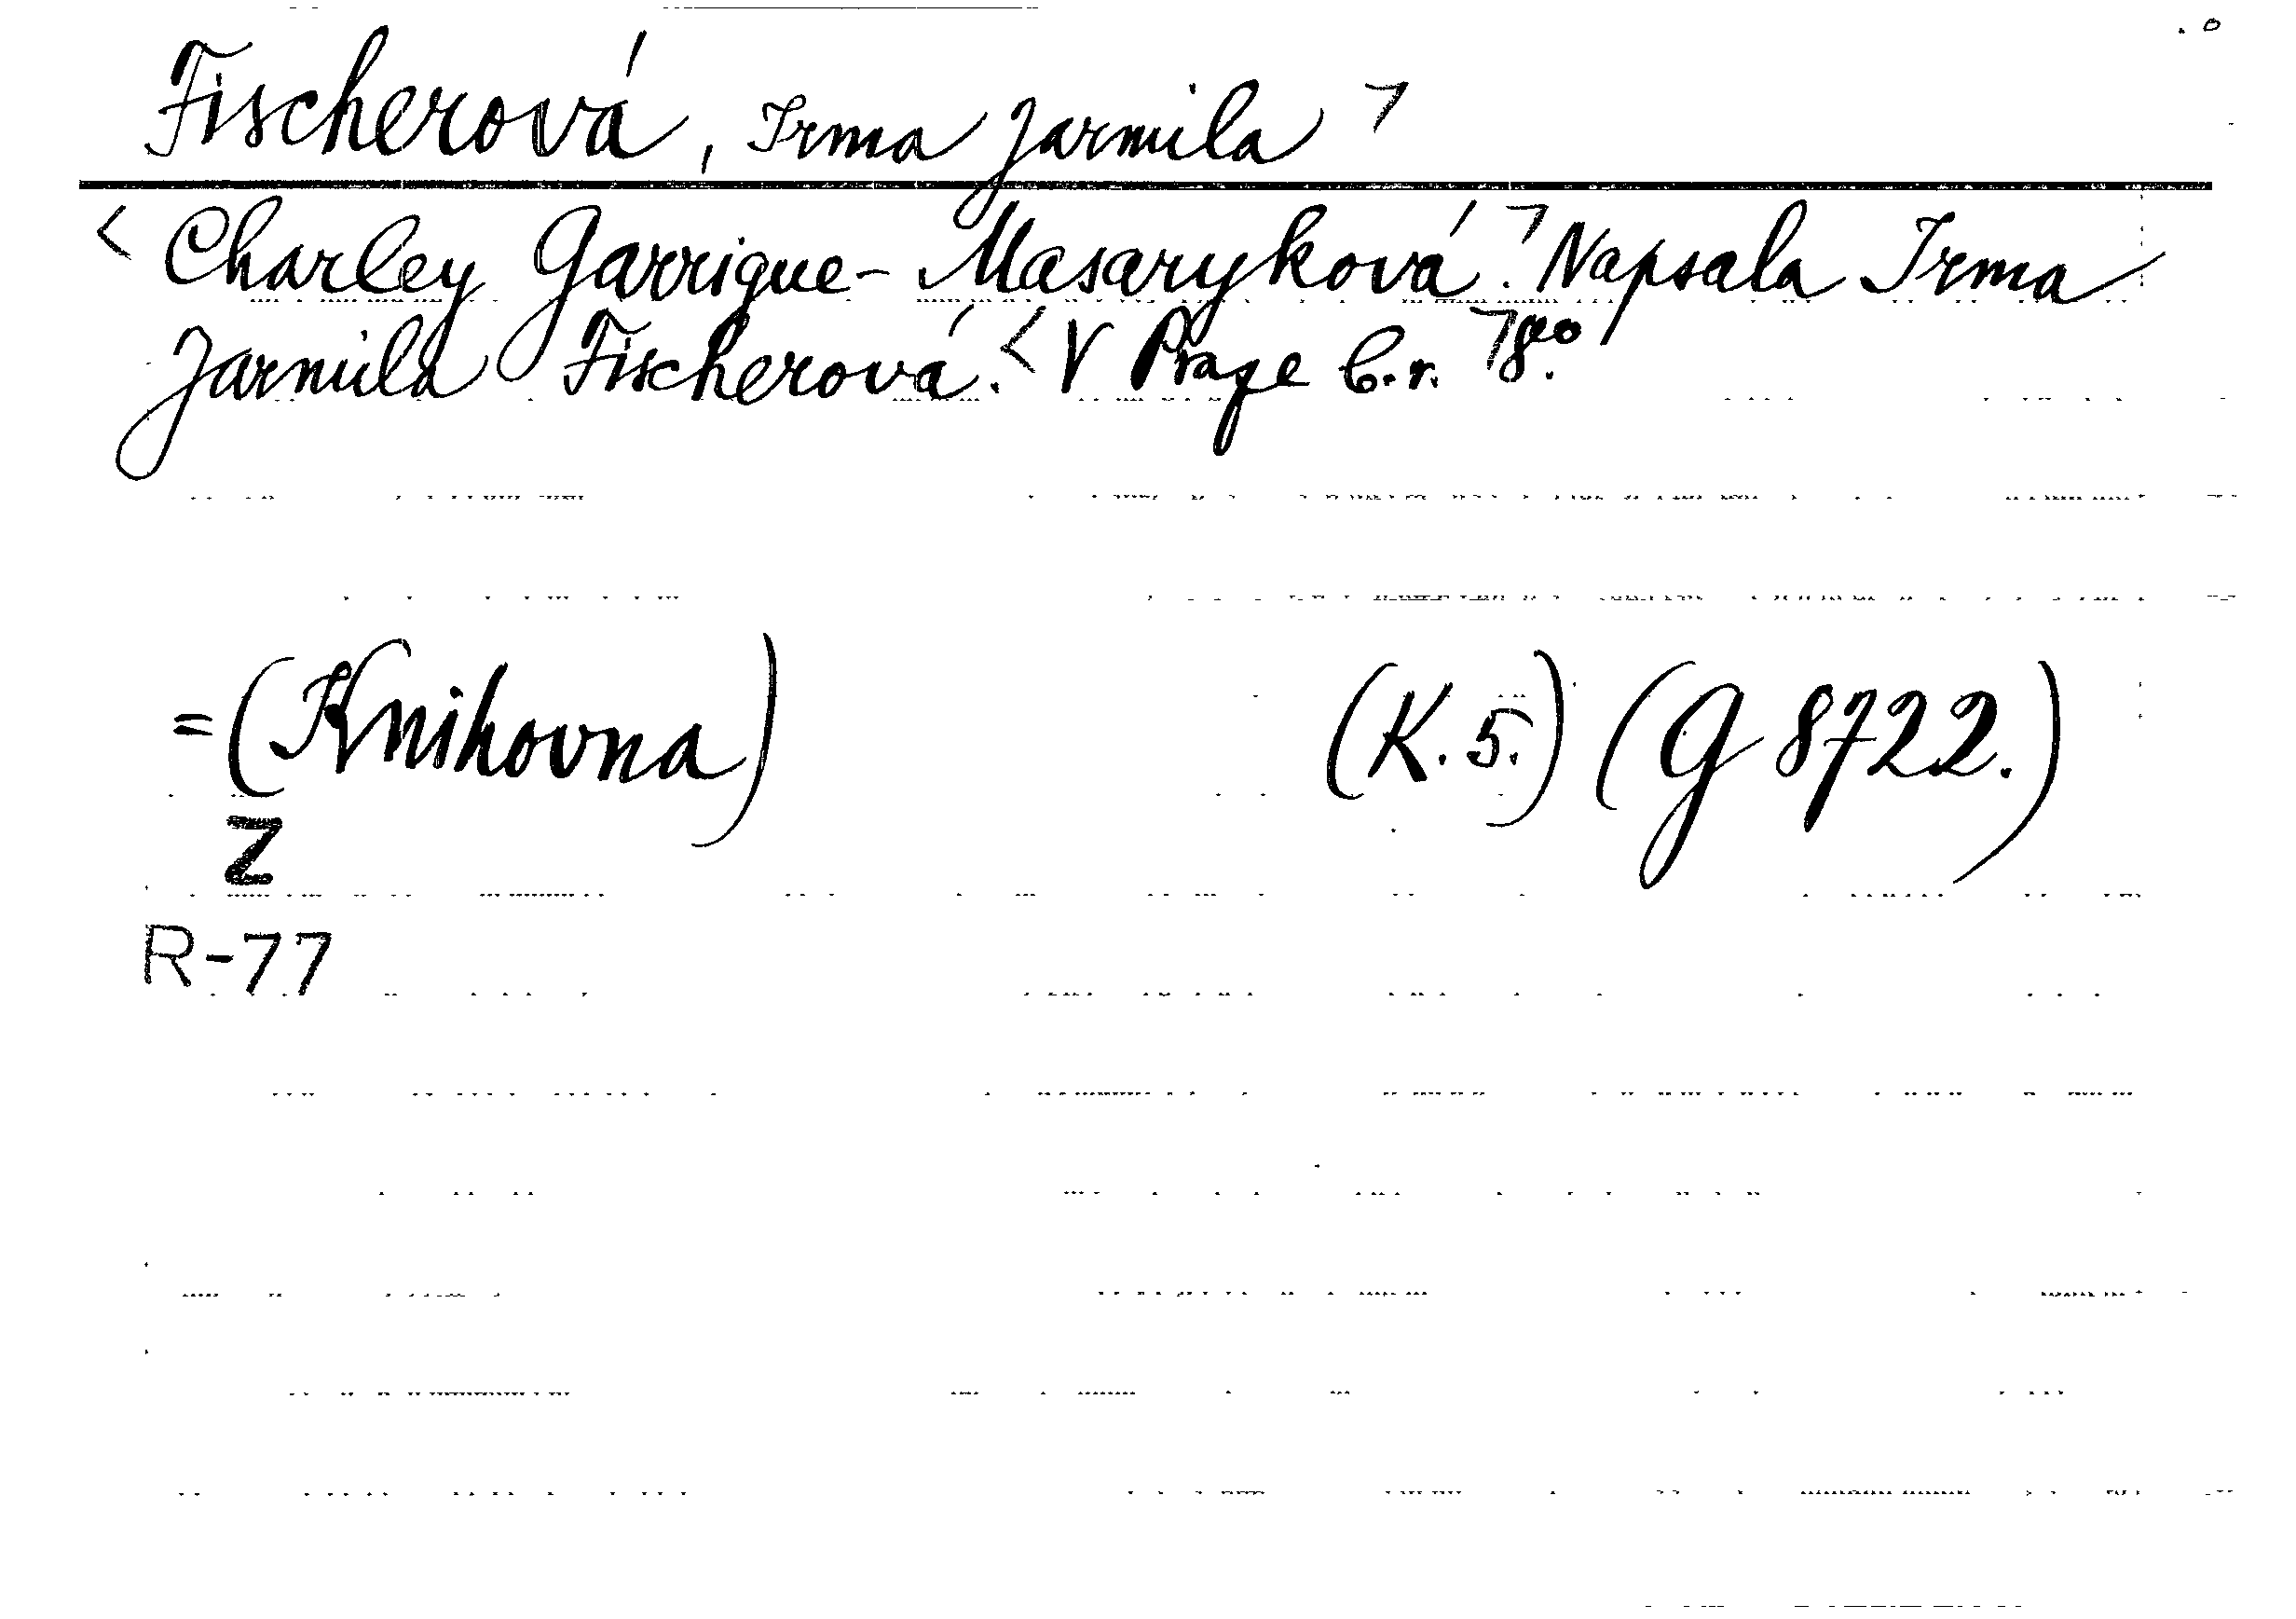 Fischerová, Irma Jarmila ⌝
< Charley Garrigue-Masaryková. ⌝ Napsala Irma
Jarmila Fischerová. < V Praze b. r. ⌝ 8°.
=(Knihovna) (K. 5.) (G 8722.)
Z
R-77